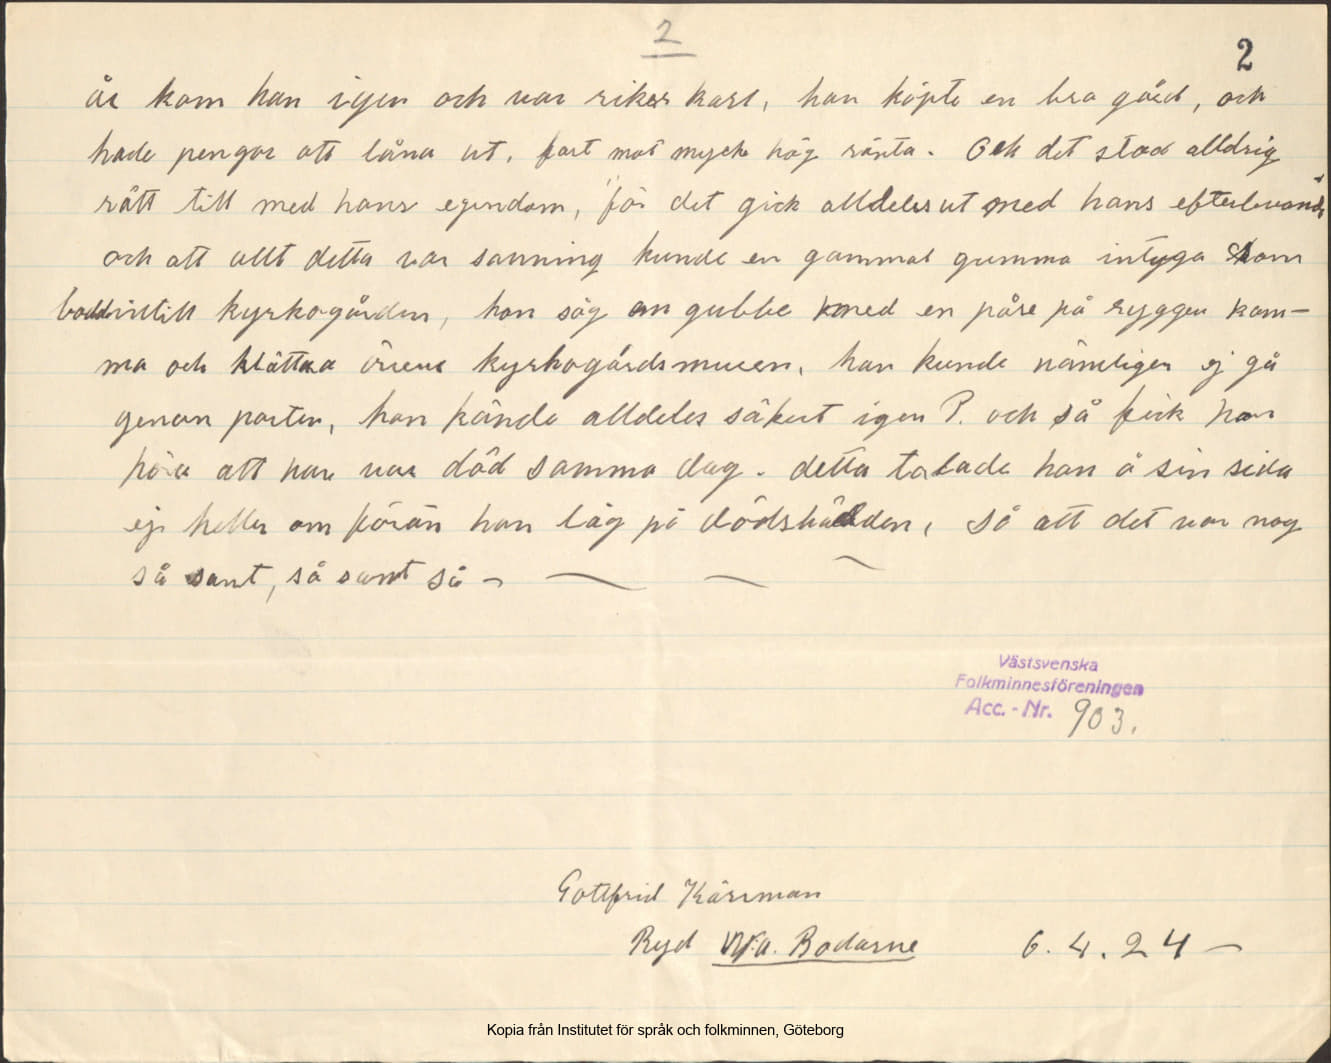 2
2
år kom han igen och var riker karl, han köpte en bra gård, och
hade pengar att låna ut, fast mot mycke hög ränta. Och det stod alldrig
rätt till med hans egendom, för det gick alldeles ut med hans efterlevande
och att allt detta var sanning kunde en gammal gumma intyga som
bodde intill kyrkogården, hon såg en gubbe med en påse på ryggen kom-
ma och klättra över kyrkogårdsmuren, han kunde nämligen ej gå
genom porten, hon kände alldeles säkert igen P. och så fick hon
höra att han var död samma dag. detta talade hon å sin sida
ej heller om förän hon låg på dödsbädden, så att det var nog
så sant, så sant så –
Västsvenska
Folkminnesföreningen
Acc. - Nr. 903.
Gottfrid Kärrman
Ryd Bodarne 6.4.24 –
Kopia från Institutet för språk och folkminnen, Göteborg